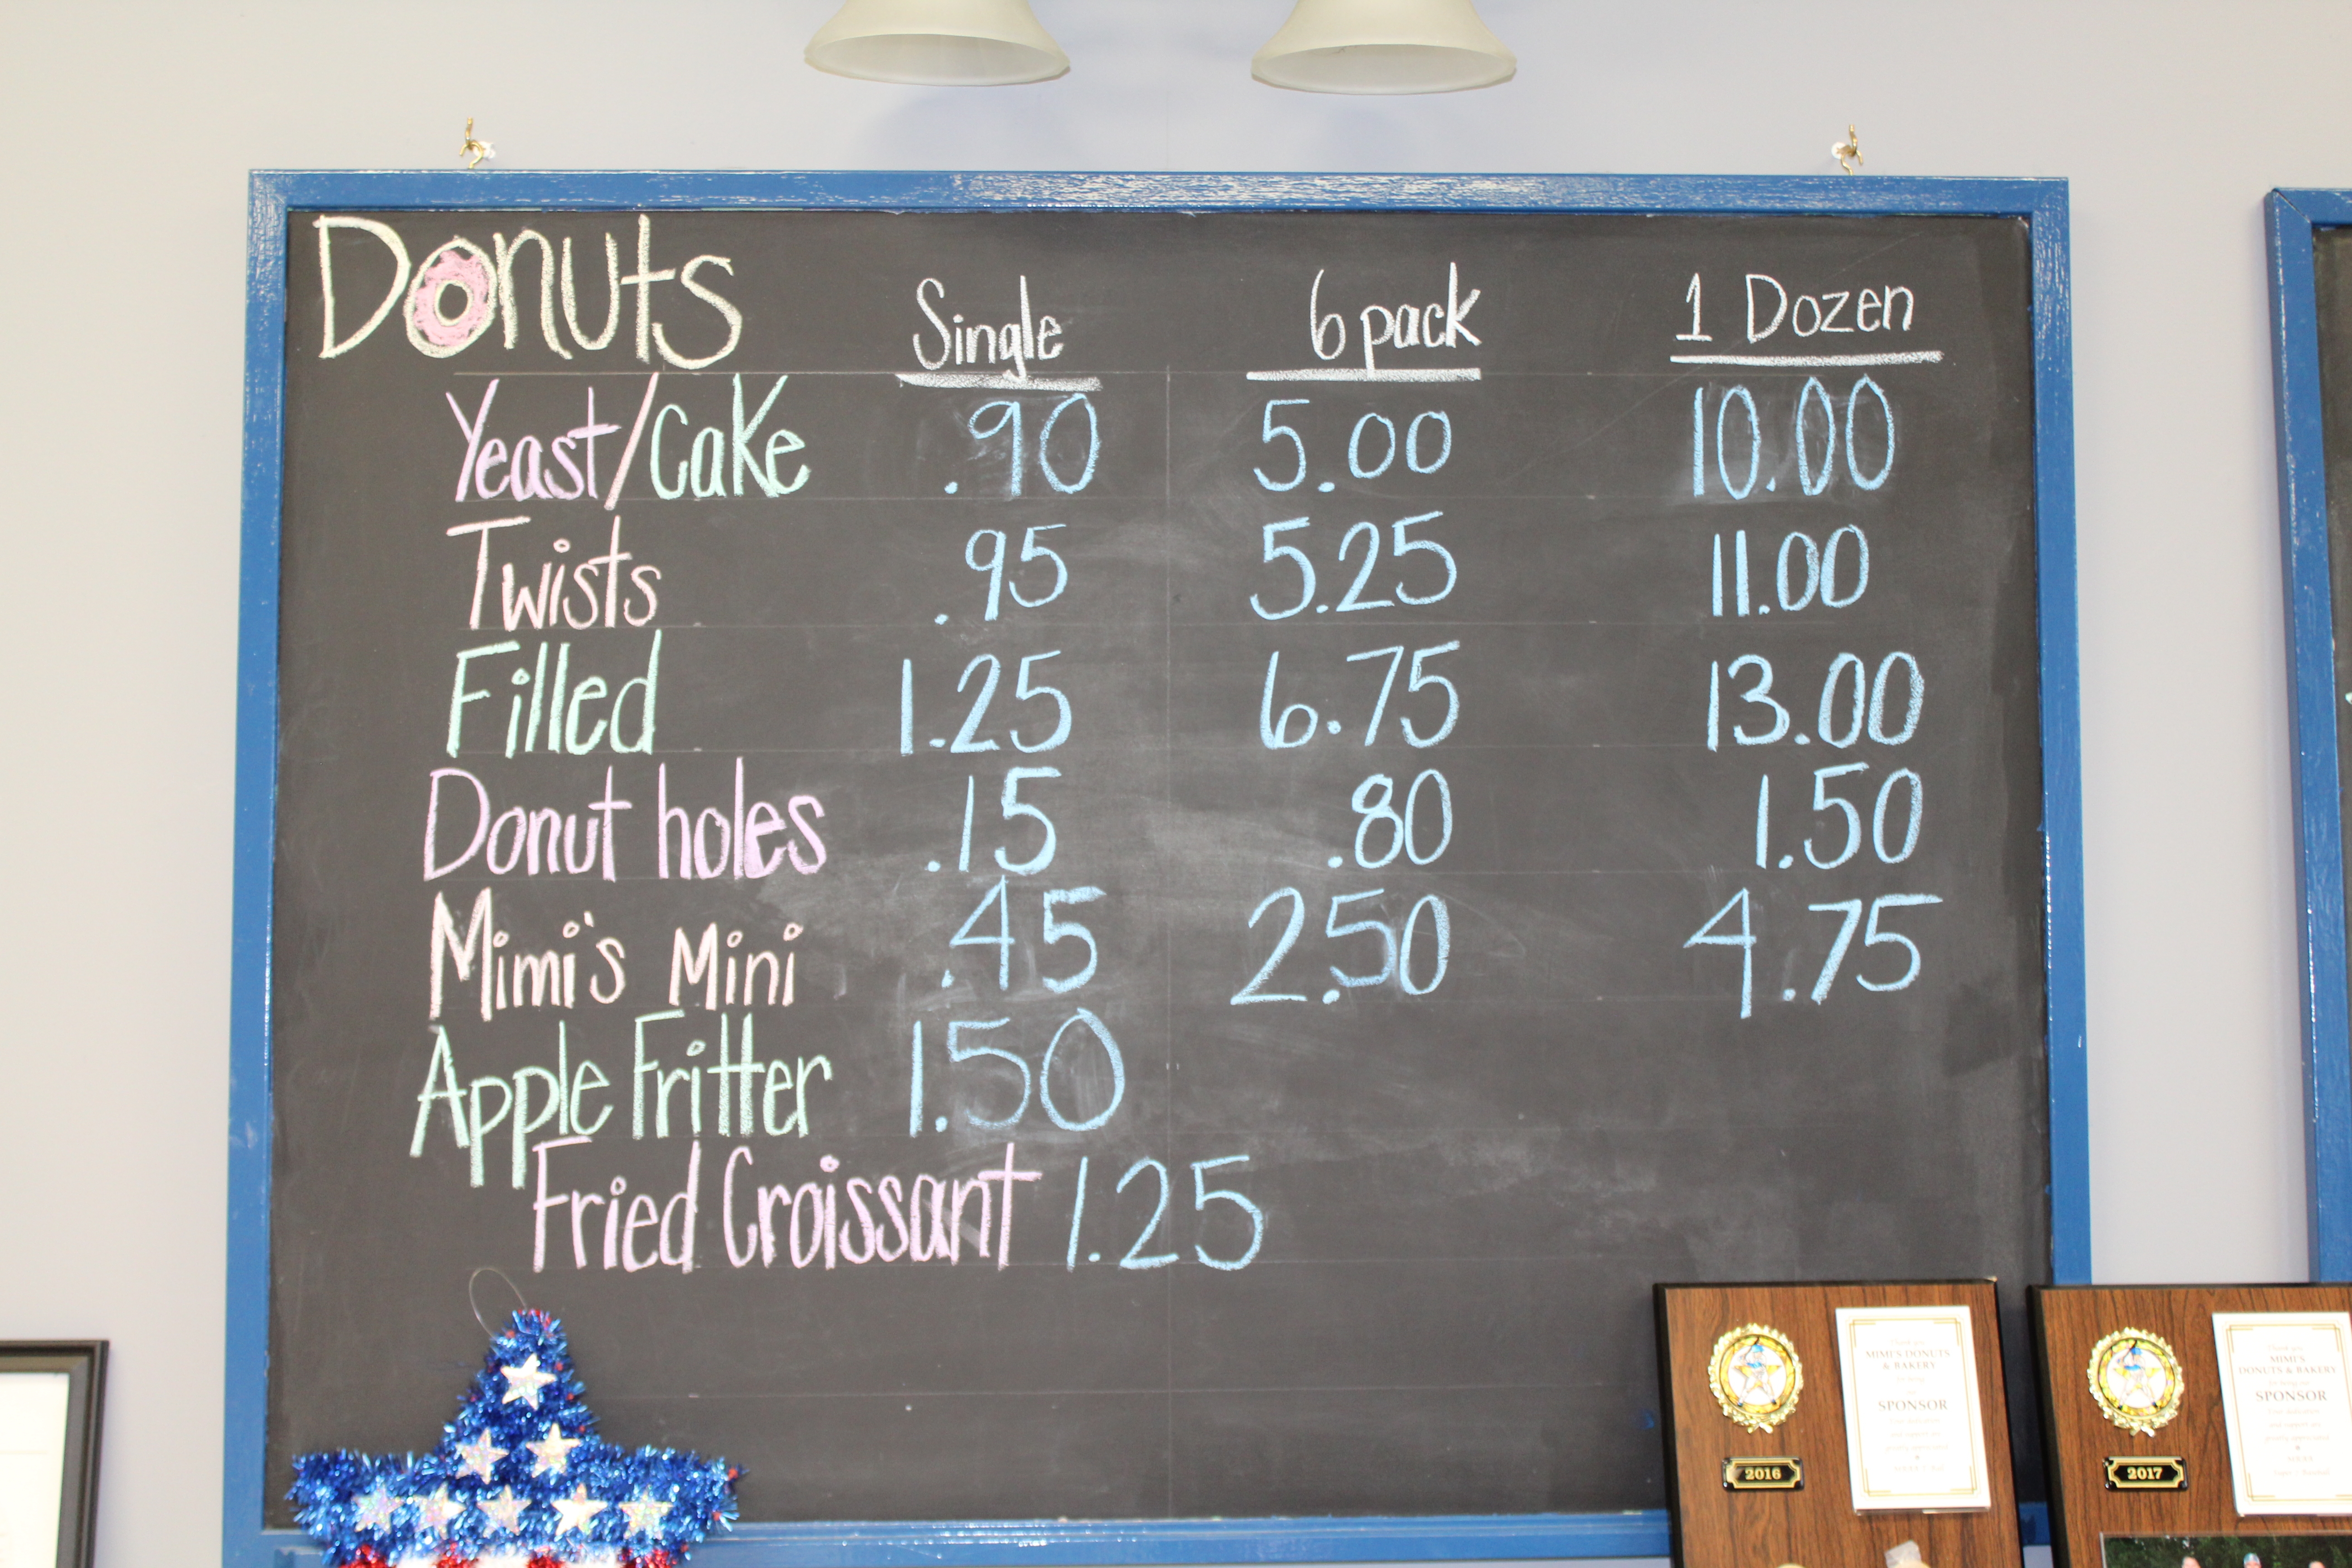 Donuts Single 6 pack 1 Dozen
Yeast/Cake .90 5.00 10.00
Twists .95 5.25 11.00
Filled 1.25 6.75 13.00
Donut holes .15 .80 1.50
Mimi's Mini .45 2.50 4.75
Apple Fritter 1.50
Fried Croissant 1.25
Thank you
MIMI'S DONUTS
& BAKERY
for being
our
SPONSOR
2016
Thank you
MIMI'S
DONUTS & BAKERY
for being our
SPONSOR
2017